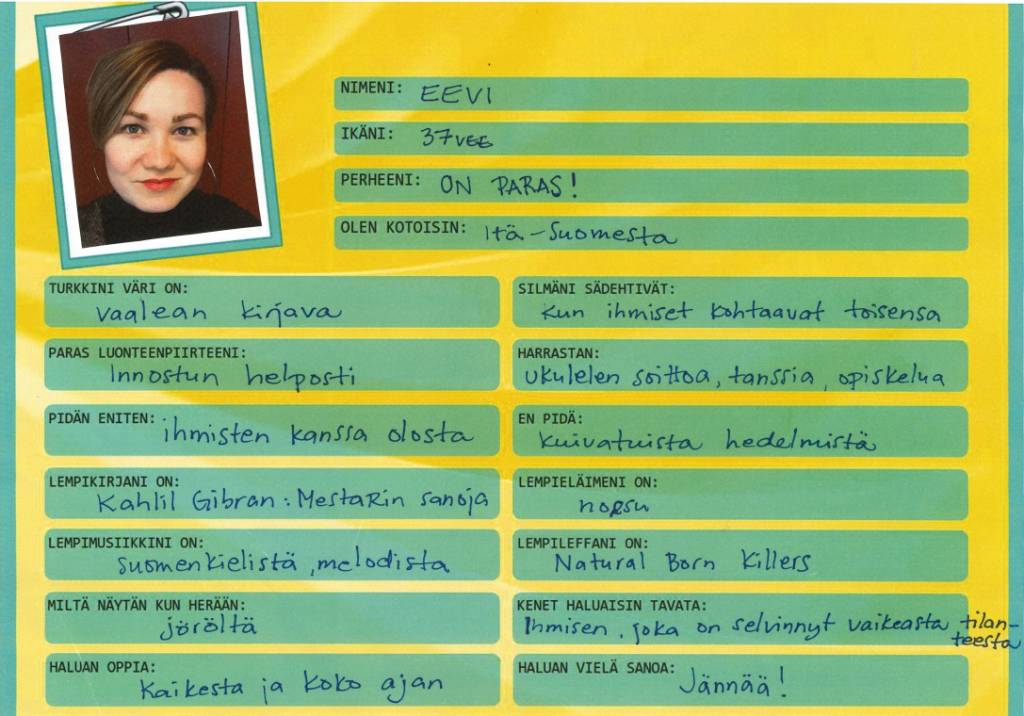 NIMENI: EEVI
IKÄNI: 37 vee
PERHEENI: ON PARAS!
OLEN KOTOISIN: Itä-Suomesta
TURKKINI VÄRI ON:
vaalean kirjava
SILMÄNI SÄDEHTIVÄT:
kun ihmiset kohtaavat toisensa
PARAS LUONTEENPIIRTEENI:
Innostun helposti
HARRASTAN:
ukulelen soittoa, tanssia, opiskelua
PIDÄN ENITEN: ihmisten kanssa olosta
EN PIDÄ:
kuivatuista hedelmistä
LEMPIKIRJANI ON:
Kahlil Gibran: Mestarin sanoja
LEMPIELÄIMENI ON:
norsu
LEMPIMUSIIKKINI ON:
suomenkielistä, melodista
LEMPILEFFANI ON:
Natural Born Killers
MILTÄ NÄYTÄN KUN HERÄÄN:
jöröltä
KENET HALUAISIN TAVATA:
Ihmisen, joka on selvinnyt vaikeasta tilan-
teesta
HALUAN OPPIA:
Kaikesta ja koko ajan
HALUAN VIELÄ SANOA:
Jännää!